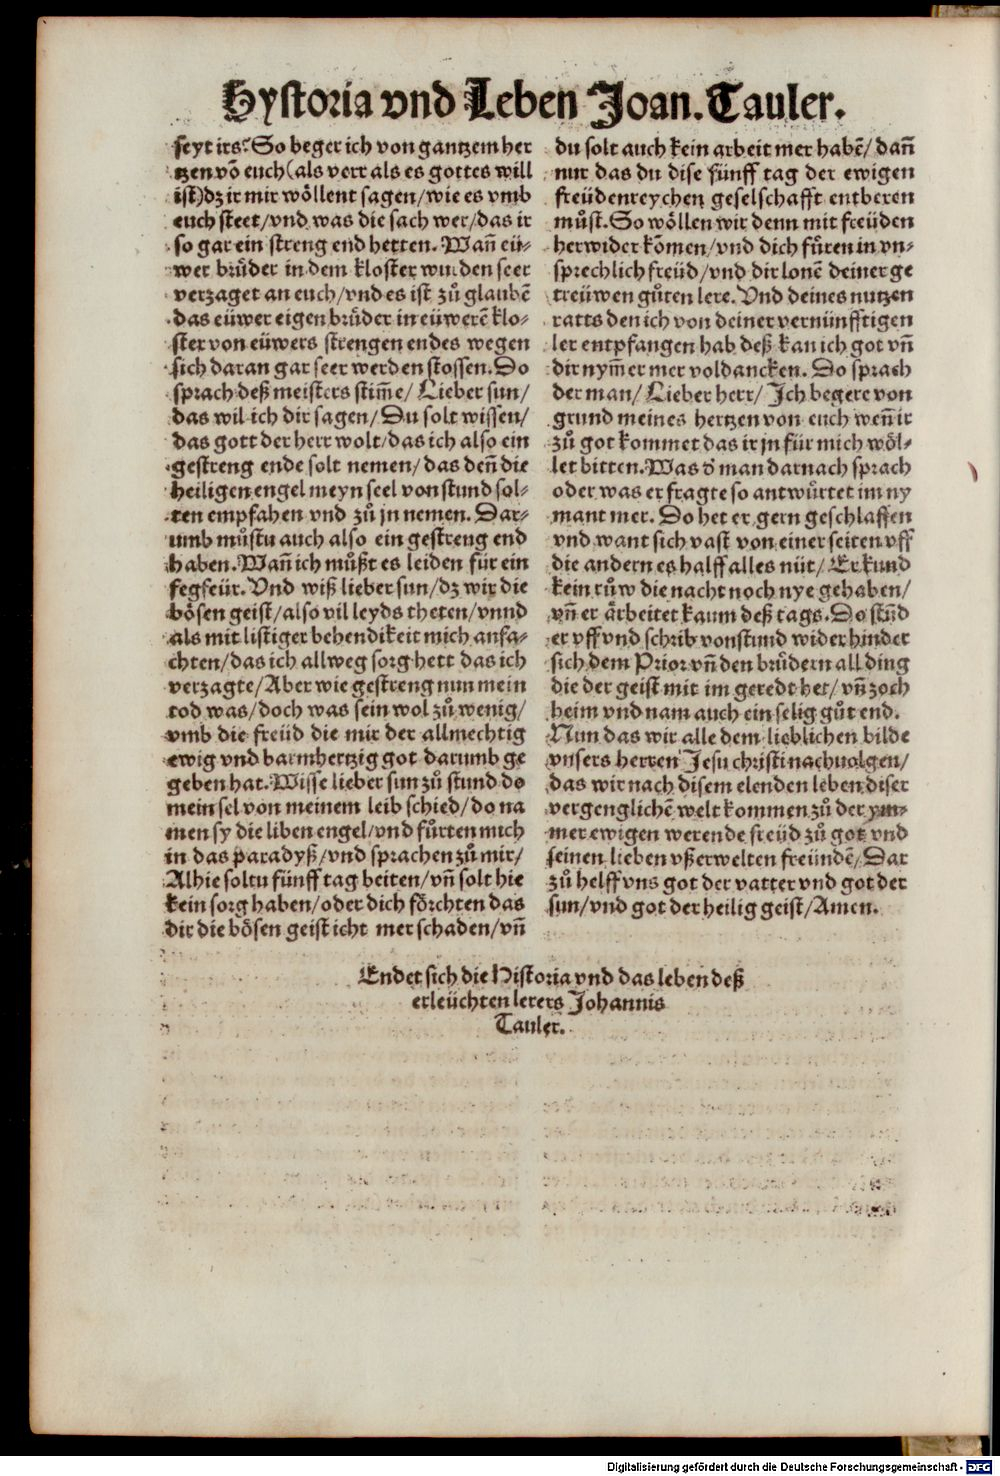 Hystoria vnd Leben Joan. Tauler.
seyt irs? So beger ich von gantzem her
tzen võ euch (als verr als es gottes will
ist) dz ir mir wöllent sagen / wie es vmb
euch steet / vnd was die sach wer / das ir
so gar ein streng end hetten. Wañ eü⸗
wer brůder in dem kloster wurden seer
verzaget an euch / vnd es ist zů glaubẽ
das eüwer eigen brůder in eüwerẽ klo⸗
ster von eüwers strengen endes wegen
sich daran gar seer werden stossen. Do
sprach deß meisters stim̃e / Lieber sun /
das wil ich dir sagen / Du solt wissen /
das gott der herr wolt / das ich also ein
gestreng ende solt nemen / das deñ die
heiligen engel meyn seel von stund sol⸗
ten empfahen vnd zů jn nemen. Dar⸗
umb můstu auch also ein gestreng end
haben. Wañ ich můßt es leiden für ein
fegfeür. Vnd wiß lieber sun / dz wir die
bösen geist / also vil leyds theten / vnnd
als mit listiger behendikeit mich anfa⸗
chten / das ich allweg sorg hett das ich
verzagte / Aber wie gestreng nun mein
tod was / doch was sein wol zů wenig /
vmb die freüd die mir der allmechtig
ewig vnd barmhertzig got darumb ge
geben hat. Wisse lieber sun zů stund do
mein sel von meinem leib schied / do na
men sy die liben engel / vnd fůrten mich
in das paradyß / vnd sprachen zů mir /
Alhie soltu fünff tag beiten / vñ solt hie
kein sorg haben / oder dich förchten das
dir die bösen geist icht mer schaden / vñ
du solt auch kein arbeit mer habẽ / dañ
nur das du dise fünff tag der ewigen
freüdenreychen geselschafft entberen
můst. So wöllen wir denn mit freüden
herwider kömen / vnd dich fůren in vn⸗
sprechlich freüd / vnd dir lonẽ deiner ge
treüwen gůten lere. Vnd deines nutzen
ratts den ich von deiner vernünfftigen
ler entpfangen hab deß kan ich got vñ
dir nym̃er mer voldancken. Do sprach
der man / Lieber herr / Ich begere von
grund meines hertzen von euch weñ ir
zů got kommet das ir jn für mich wöl⸗
let bitten. Was d' man darnach sprach
oder was er fragte so antwůrtet im ny
mant mer. Do het er gern geschlaffen
vnd want sich vast von einer seiten vff
die andern es halff alles nüt / Er kund
kein růw die nacht noch nye gehaben /
vñ er ärbeitet kaum deß tags. Do stůnd
er vff vnd schrib vonstund wider hinder
sich dem Prior vñ den brůdern all ding
die der geist mit im geredt het / vñ zoch
heim vnd nam auch ein selig gůt end.
Nun das wir alle dem lieblichen bilde
vnsers herren Jesu christi nachuolgen /
das wir nach disem elenden leben diser
vergenglichẽ welt kommen zů der ym⸗
mer ewigen werende freüd zů got vnd
seinen lieben vßerwelten freündẽ / Dar
zů helff vns got der vatter vnd got der
sun / vnd got der heilig geist / Amen.
Endet sich die Historia vnd das leben deß
erleüchten lerers Johannis
Tauler.
Digitalisierung gefördert durch die Deutsche Forschungsgemeinschaft - DFG